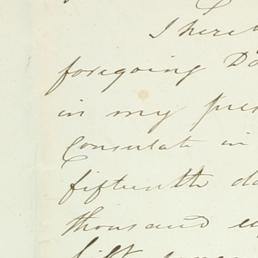 I here
foregoing D
in my pres
Consulate in
fifteenth da
thousand e